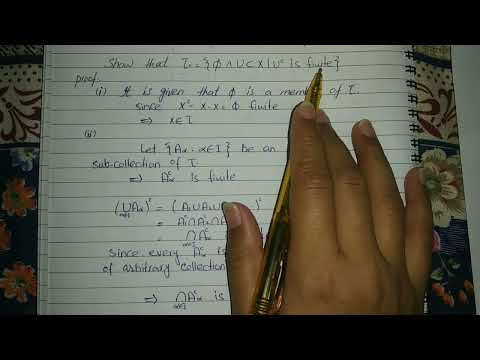 Show that τ = {ϕ ∧ U ⊂ X | Uᶜ is finite}
proof
(i) It is given that ϕ is a member of τ.
since Xᶜ = X - X = ϕ finite
⇒ X ∈ τ
(ii)
Let {Aα : α ∈ I} be an
sub-collection of τ
⇒ Aαᶜ is finite
(∪Aα)ᶜ = (A₁ ∪ A₂ ∪
= A₁ᶜ ∩ A₂ᶜ ∩
= ∩ Aαᶜ
Since every Aαᶜ
of arbitrary collection
⇒ ∩ Aαᶜ is